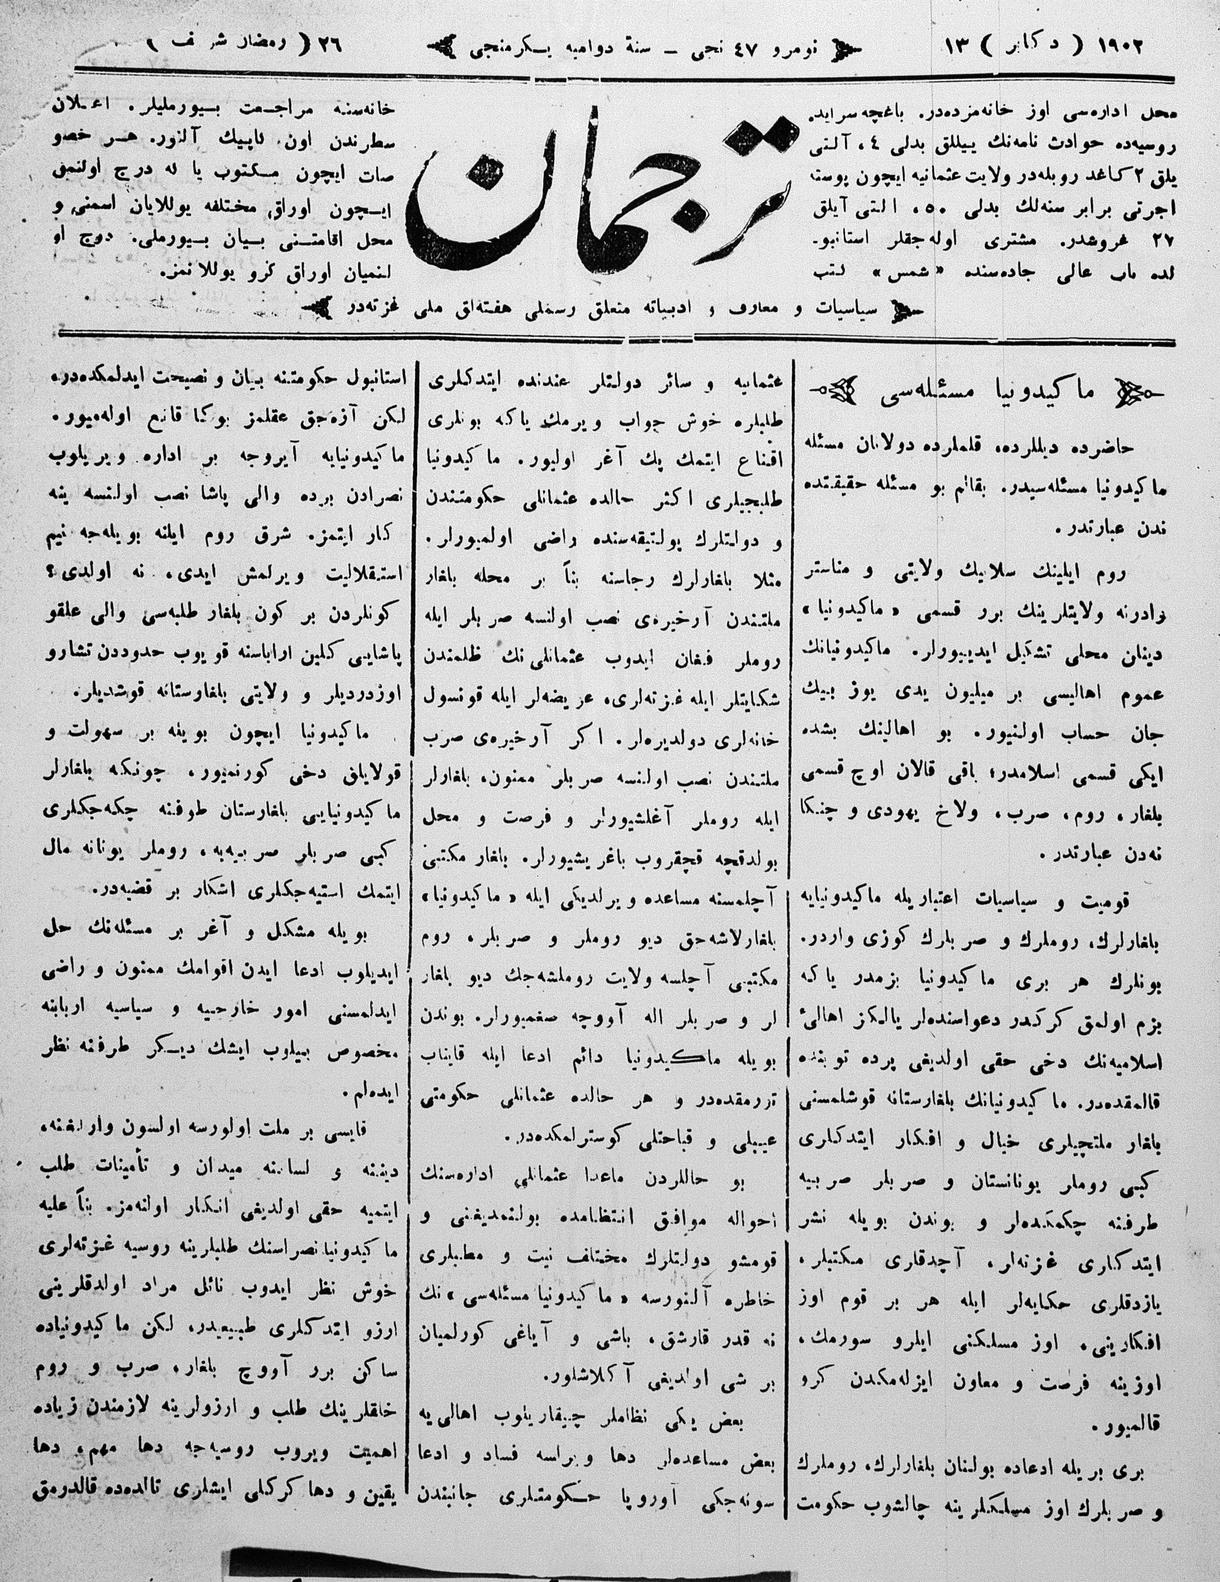 ١٩٠٢ ( دكابر ) ١٣
نومرو ٤٧ نجى ـ سنهٔ دواميه يكرمنجى
٢٦ ( رمضان شريف )
محل اداره‌سى اوز خانه‌مزده‌در. باغچه سرايده.
روسيه‌ده حوادث نامه‌نك ييللق بدلى ٤، آلتى
يلق ٢ كاغد روبله‌در ولايت عثمانيه ايچون پوسته
اجرتى برابر سنه‌لك بدلى ٥٠، التى آيلق
٢٧ غروشدر. مشترى اوله‌جقلر استانبو.
لده باب عالى جاده‌سنده «شمس» كتب
ترجمان
خانه‌سنه مراجعت بيورمليلر. اعلان
سطرندن اون كاپيك آلنور. هر خصو
صات ايچون مكتوب يا له درج اولنمق
ايچون اوراق مختلفه يوللايان اسمنى و
محل اقامتنى بيان بيورملى. درج او
لنميان اوراق كرو يوللانمز.
سياسيات و معارف و ادبياته متعلق رسملى هفته‌لق ملى غزته‌در
ماكيدونيا مسئله‌سى
حاضرده ديللرده، قلملرده دولانان مسئله
ماكيدونيا مسئله‌سيدر. بقالم بو مسئله حقيقتده
ندن عبارتدر.
روم ايلينك سلانيك ولايتى و مناستر
وادرنه ولايتلرينك برر قسمى «ماكيدونيا»
دينان محلى تشكيل ايديبورلر. ماكيدونيانك
عموم اهاليسى بر ميليون يدى يوز بيك
جان حساب اولنيور. بو اهالينك بشده
ايكى قسمى اسلامدر؛ باقى قالان اوچ قسمى
بلغار، روم، صرب، ولاخ يهودى و چنكا
نه‌دن عبارتدر.
قوميت و سياسيات اعتباريله ماكيدونيايه
بلغارلرك، روملرك و صربلرك كوزى واردر.
بونلرك هر برى ماكيدونيا بزمدر ياكه
بزم اولمق كركدر دعواسنده‌لر يالكز اهالئ
اسلاميه‌نك دخى حقى اولديغى پرده توبنده
قالمقده‌در. ماكيدونيانك بلغارستانه قوشلمسنى
بلغار ملتچيلرى خيال و افكار ايتدكلرى
كبى روملر يونانستان و صربلر صربيه
طرفنه چكمكده‌لر و بوندن بويله نشر
ايتدكلرى غزته‌لر، آچدقلرى مكتبلر،
يازدقلرى حكايه‌لر ايله هر بر قوم اوز
افكارينى، اوز مسلكنى ايلرو سورمك،
اوزينه فرصت و معاون ايزله‌مكدن كرو
قالميور.
برى بريله ادعاده بولنان بلغارلرك، روملرك
و صربلرك اوز مسلكلرينه چالشوب حكومت
عثمانيه و سائر دولتلر عندنده ايتدكلرى
طلبلره خوش جواب ويرمك ياكه بونلرى
اقناع ايتمك پك آغر اوليور. ماكيدونيا
طلبجيلرى اكثر حالده عثمانلى حكومتندن
و دولتلرك پولتيقه‌سنده راضى اولميورلر.
مثلا بلغارلرك رجاسنه بناً بر محله بلغار
ملتندن آرخيره‌ى نصب اولنسه صربلر ايله
روملر فغان ايدوب عثمانلى‌نك ظلمندن
شكايتلر ايله غزته‌لرى، عريضه‌لر ايله قونسول
خانه‌لرى دولديره‌لر. اكر آرخيره‌ى صرب
ملتندن نصب اولنسه صربلر ممنون، بلغارلر
ايله روملر آغلشيورلر و فرصت و محل
بولدقچه قچقروب باغريشيورلر. بلغار مكتبى
آچلمسنه مساعده ويرلديكى ايله «ماكيدونيا»
بلغارلاشه‌جق ديو روملر و صربلر، روم
مكتبى آچلسه ولايت روملشه‌جك ديو بلغار
لر و صربلر اله آووچه صغميورلر. بوندن
بويله ماكيدونيا دائم ادعا ايله قايناب
تزرمقده‌در و هر حالده عثمانلى حكومتى
عيبلى و قباحتلى كوسترلمكده‌در.
بو حاللردن ماعدا عثمانلى اداره‌سنك
احواله موافق انتظامده بولنمديغنى و
قومشو دولتلرك مختلف نيت و مطلبلرى
خاطره آلنورسه «ماكيدونيا مسئله‌سى» نك
نه قدر قارشق، باشى و آياغى كورلميان
بر شى اولديغى آكلاشلور.
بعض يكى نظاملر چيقاريلوب اهالى‌يه
بعض مساعده‌لر دها ويرلسه فساد و ادعا
سونه‌جكى آوروپا حكومتلرى جانبندن
استانبول حكومتنه بيان و نصيحت ايدلمكده‌در.
لكن آزه‌جق عقلمز بوكا قانع اوله‌ميور.
ماكيدونيايه آيروجه بر اداره ويريلوب
نصرادن برده والى پاشا نصب اولنسه ينه
كار ايتمز. شرق روم ايلنه بويله‌جه نيم
استقلاليت ويرلمش ايدى، نه اولدى؟
كونلردن بر كون بلغار طلبه‌سى والى علقو
پاشايى كلين اراباسنه قويوب حدوددن تشارو
اوزدرديلر و ولايتى بلغارستانه قوشديلر.
ماكيدونيا ايچون بويله بر سهولت و
قولايلق دخى كورنميور. چونكه بلغارلر
ماكيدونيايى بلغارستان طرفنه چكه‌جكلرى
كبى صربلر صربيه‌يه، روملر يونانه مال
ايتمك استيه‌جكلرى اشكار بر قضيه‌در.
بويله مشكل و آغر بر مسئله‌نك حل
ايديلوب ادعا ايدن اقوامك ممنون و راضى
ايدلمسنى امور خارجيه و سياسيه اربابنه
مخصوص بيلوب ايشك ديكر طرفنه نظر
ايده‌لم.
قايسى بر ملت اولورسه اولسون وارلغنه،
دينه و لساننه ميدان و تأمينات طلب
ايتميه حقى اولديغى انكار اولنه‌مز. بناً عليه
ماكيدونيا نصراسنك طلبلرينه روسيه غزته‌لرى
خوش نظر ايدوب نائل مراد اولدقلرينى
ارزو ايتدكلرى طبيعيدر، لكن ماكيدونياده
ساكن برر آووچ بلغار، صرب و روم
خلقلرينك طلب و ارزولرينه لازمندن زياده
اهميت ويروب روسيه‌جه دها مهم، دها
يقين و دها كركلى ايشلرى تالده‌ده قالدرمق